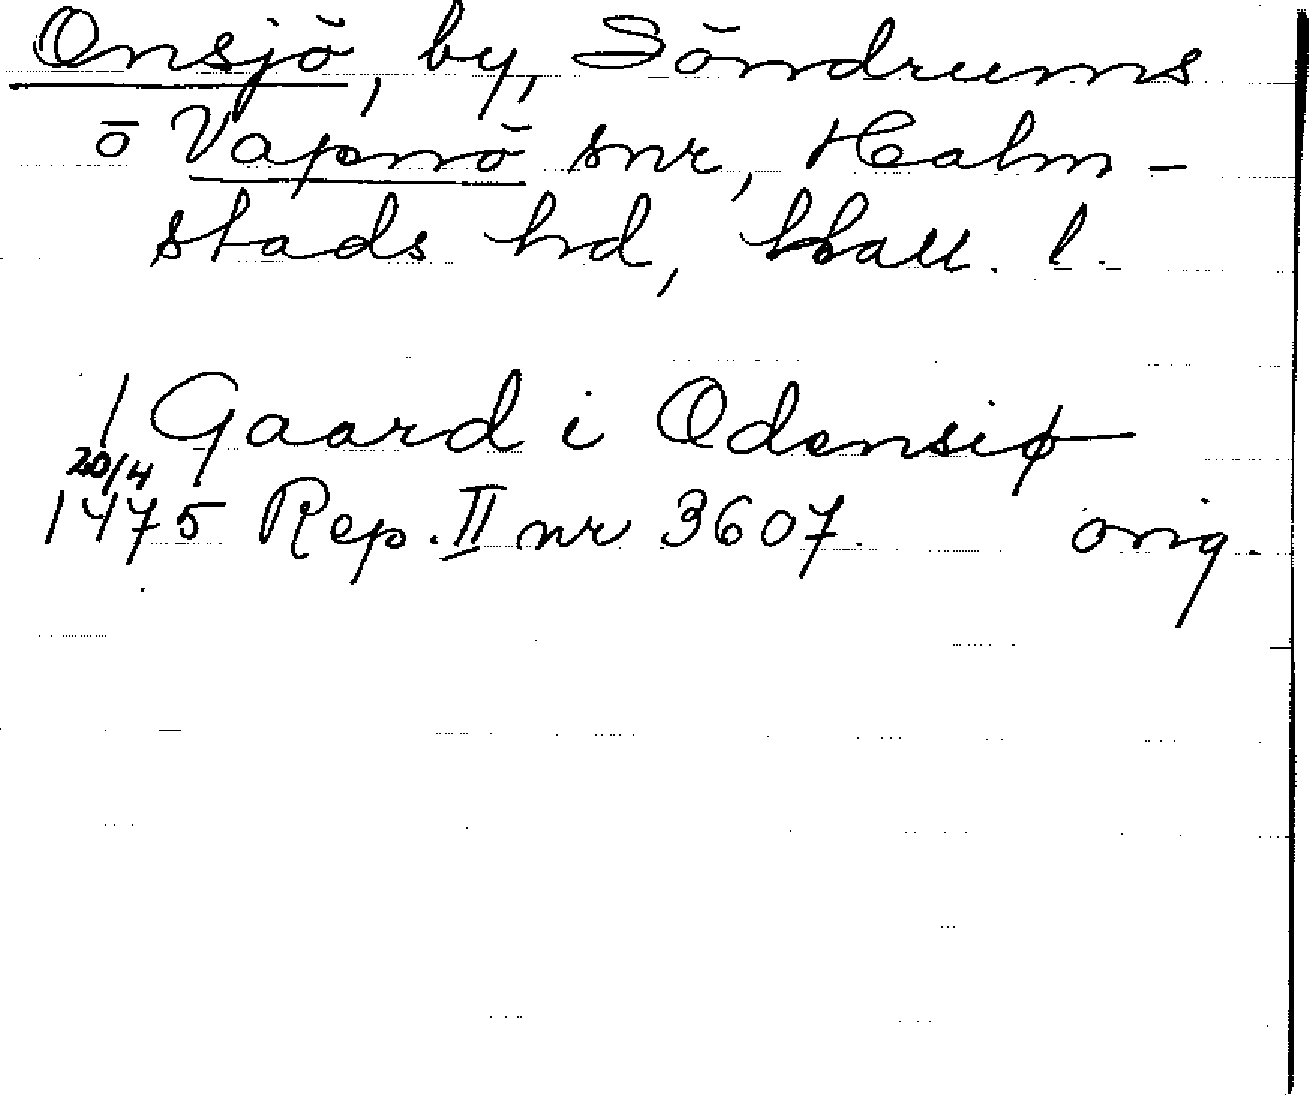 Onsjö, by, Söndrums
o Vapnö snr, Halm-
stads hd, Hall. l.
1 Gaard i Odensiø
20/4
1475 Rep. II nr 3607. orig.